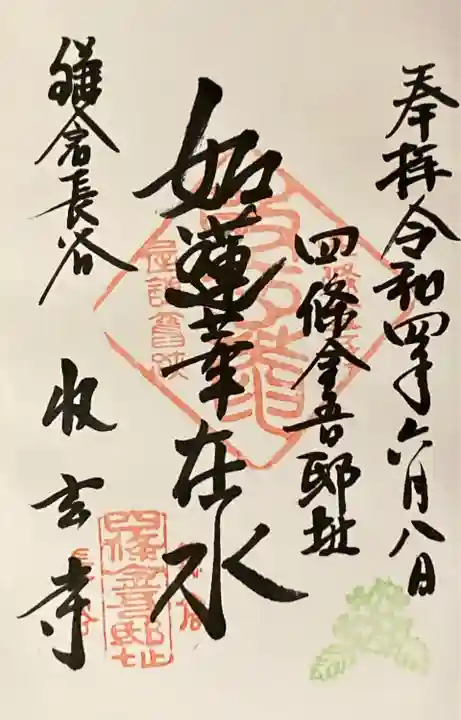 奉拝令和四年六月八日
四條金吾邸址
如蓮華在水
鎌倉長谷
収玄寺
屋敷舊跡
四條金吾邸址
長谷